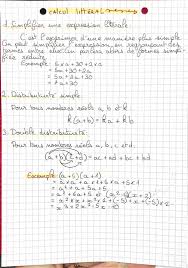 calcul littéral
1. Simplifier une expression littérale
C'est l'exprimer d'une manière plus simple
On peut simplifier l'expression en regroupant des
termes entre elles on parlera alors de forme
réduite.
Exemple: 5xa+30+2xa
= 5a+30+2a
= 5a+2a+30
= 7a+30
2. Distributivité simple
Pour tous nombres réels a, b et k
k(a+b) = ka + kb
3. Double distributivité:
Pour tous nombres réels a, b, c et d:
(a+b)(c+d) = ac+ad+bc+bd
Exemple: (a+5)(a+1)
= axa+ax1+5xa+5x1
= a²+a+5a+5
= a²+6a+5